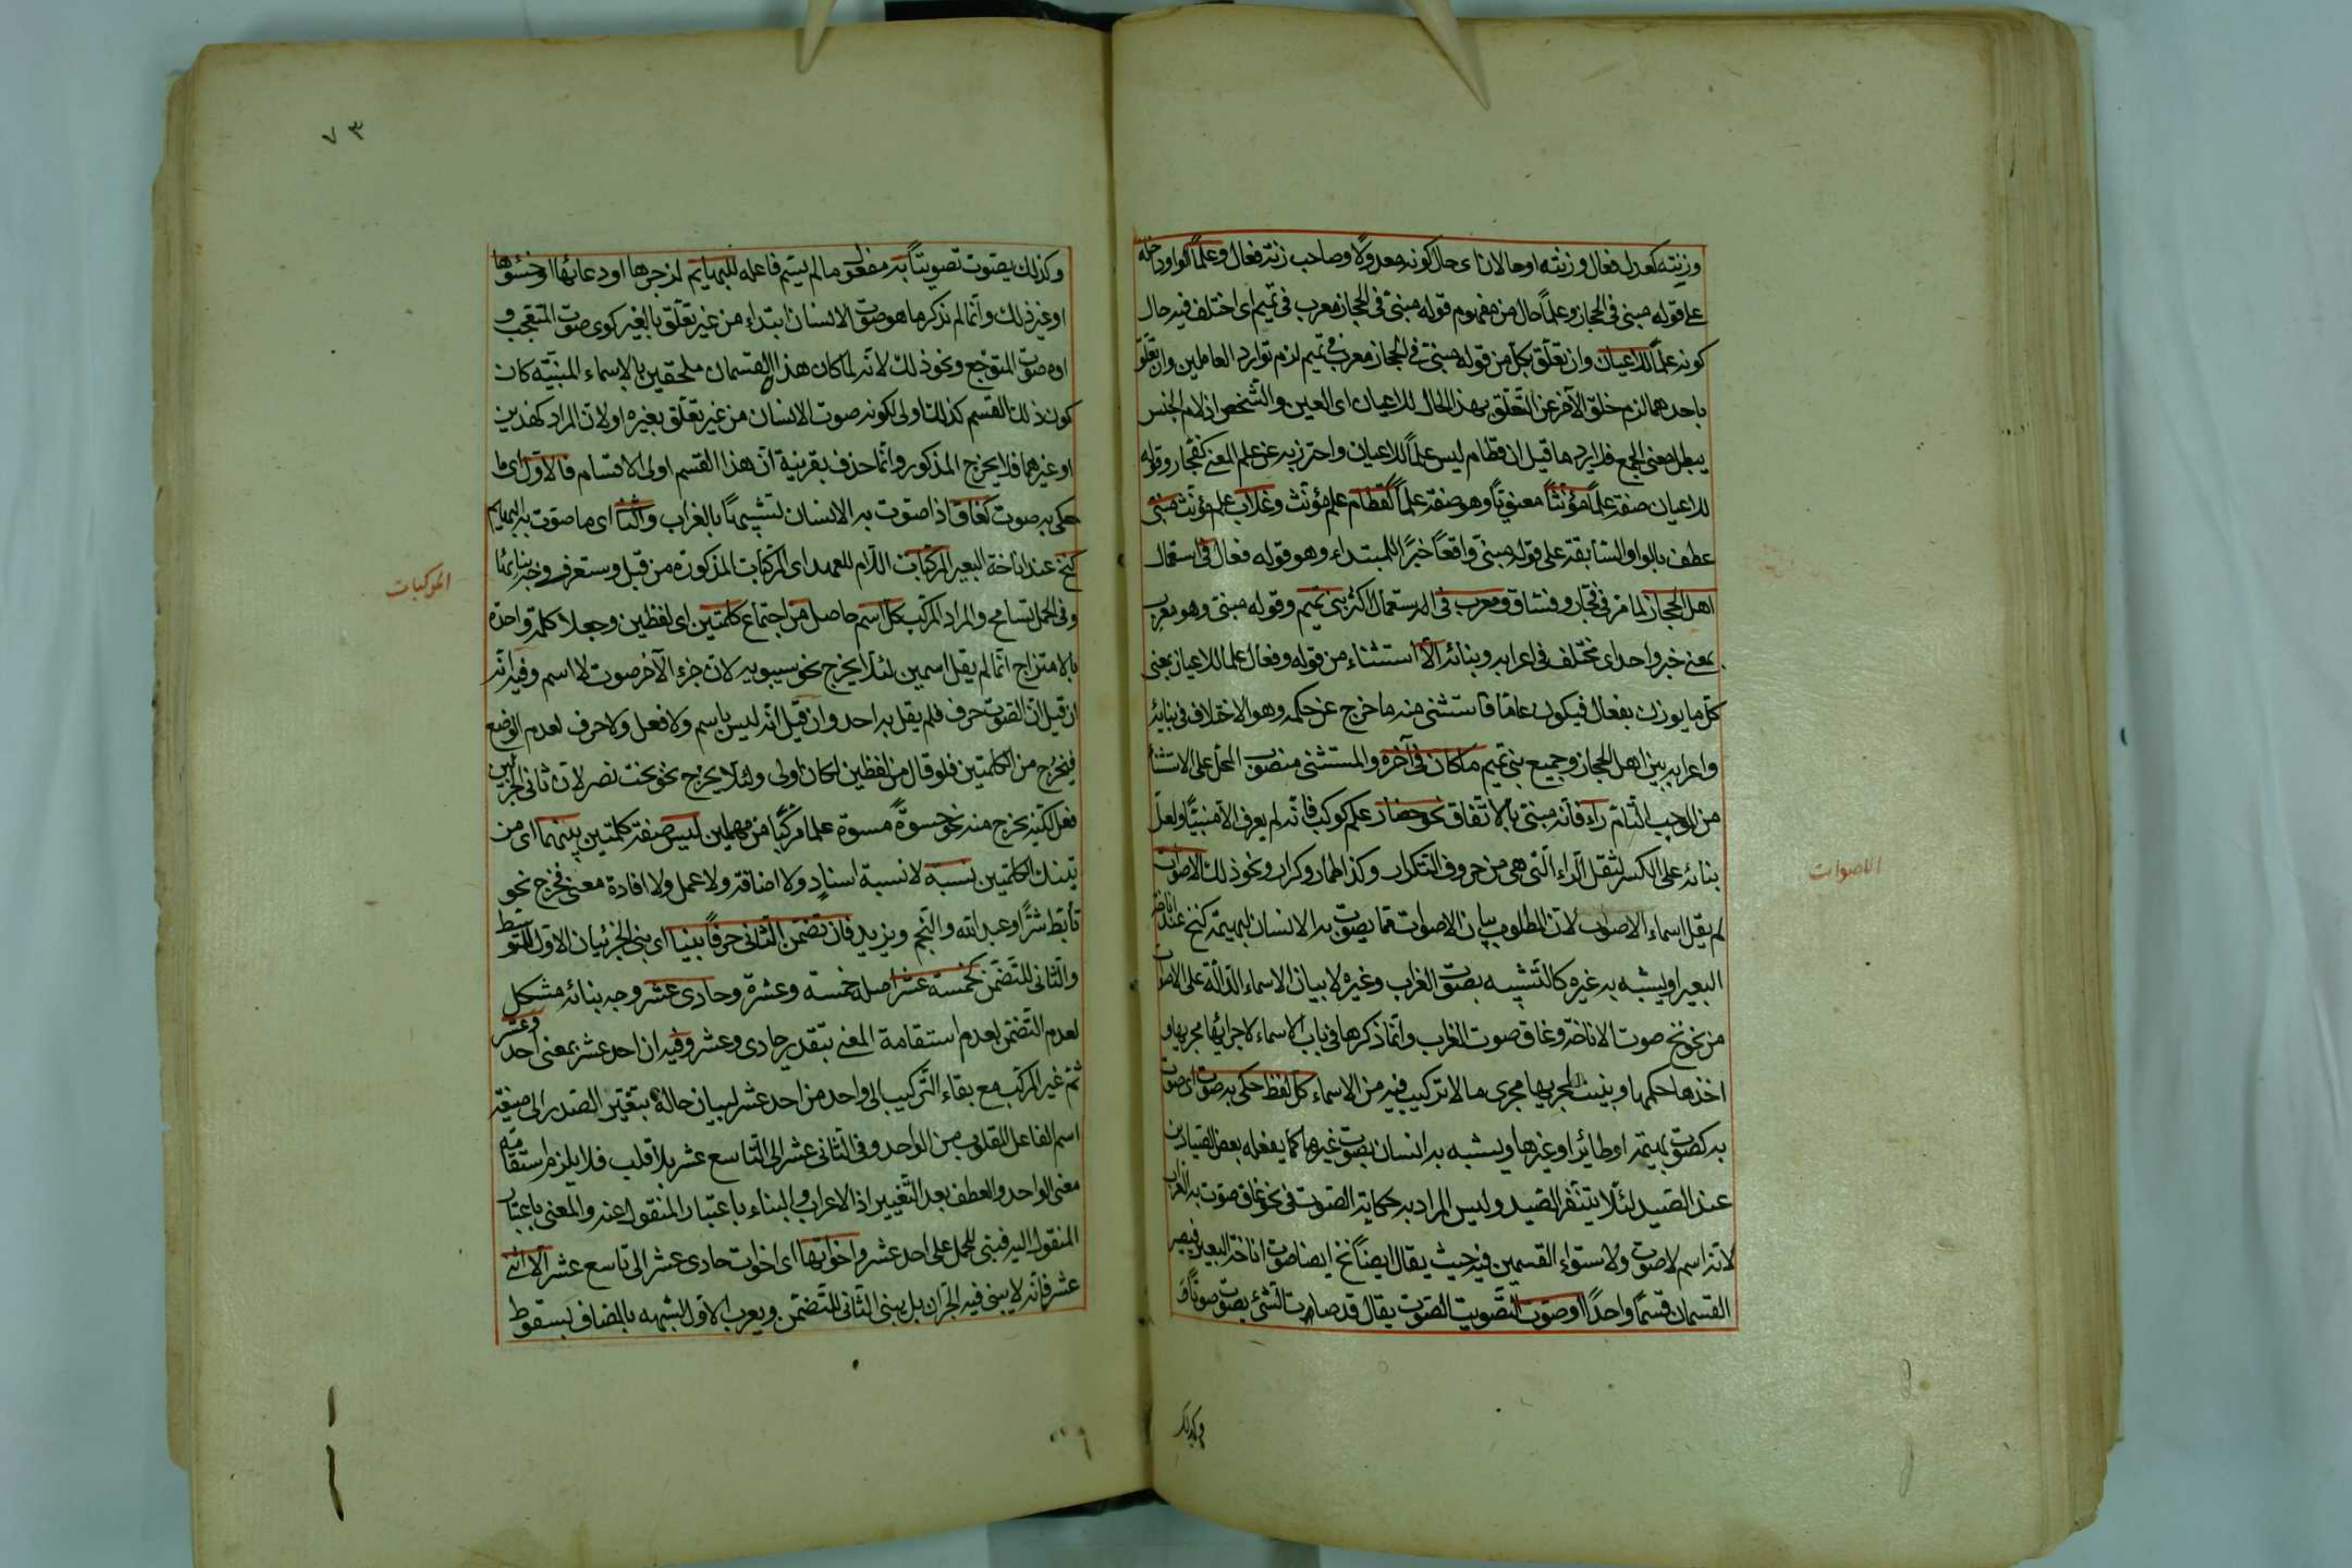 وزنته كعدل فعال وزنته او حالان اى حال كونه معدولا وصاحب زنة فعال وعلما كواو داخلة
على قوله مبنى فى الحجاز وعلما حال من مفهوم قوله مبنى فى الحجاز معرب فى تميم اى اختلف فيه حال
كونه علما للاعيان وان تعلق بكل من قوله مبنى فى الحجاز معرب فى تميم لزم توارد العاملين وان تعلق
باحدهما لزم خلو الآخر عن التعلق بهذا الحال للاعيان اى العين والتشخص اذ لام الجنس
يبطل معنى الجمع فلا يرد ما قيل ان قطام ليس علما للاعيان واحترز به عن علم المعنى كفجار وقوله
للاعيان صفة علما مؤنثا معنويا وهو صفة علما كقطام علم مؤنث وغلاب علم مؤنث مبنى
عطف بالواو السابقة على قوله مبنى واقعا خبرا للمبتداء وهو قوله فعال فى استعمال
اهل الحجاز لما مر فى فجار وفساق ومعرب فى استعمال اكثر بنى تميم وقوله مبنى وهو معرب
بمعنى خبر واحد اى مختلف فى اعرابه وبنائه الا استثناء من قوله وفعال علما للاعيان يعنى
كل ما يوزن بفعال فيكون عاما فاستثنى منه ما خرج عن حكمه وهو الاختلاف فى بنائه
واعرابه بين اهل الحجاز وجميع بنى تميم ما كان فى آخره والمستثنى منصوب المحل على الاستثناء
من الموجب التام راء فانه مبنى بالاتفاق نحو حضار علم كوكب فانه لم يعرف الا مبنيا ولعل
بنائه على الكسر لثقل الراء التى هى من حروف التكرار وكذا طمار وكرار ونحو ذلك الاصوات
لم يقل اسماء الاصوات لان المطلوب بيان الاصوات مما يصوت به الانسان لبهيمة كنخ عند اناخة
البعير او يشبه به غيره كالتشبيه بصوت الغراب وغيره لا بيان الاسماء الدالة على الاصوات
من نحو نخ صوت الاناخة وغاق صوت الغراب وانما ذكرها فى باب الاسماء لاجرائها مجريها و
اخذها حكمها وبنيت لجريها مجرى ما لا تركيب فيه من الاسماء كل لفظ حكى به صوت اى صوت
به كصوت بهيمة او طائر او غيرها ويشبه به انسان بصوت غيرها كما يفعله بعض الصيادين
عند الصيد لئلا يتنفر الصيد وليس المراد به حكاية الصوت فى نحو غاق صوت به الغراب
لانه اسم لا صوت ولاستواء القسمين فيه حيث يقال ايضا نخ ايضا صوت اناخة البعير فيصير
القسمان قسما واحدا او صوت التصويت الصوت يقال قد صات الشئ يصوت صوتا و
وكذلك
الاصوات
٧٣
وكذلك يصوت تصويتا به مفعول ما لم يسم فاعله للبهايم لزجرها او دعائها او خسؤها
او غير ذلك وانما لم نذكر ما هو صوت الانسان ابتداء من غير تعلق بالغير كوى صوت المتعجب و
اوه صوت المتوجع ونحو ذلك لانه لما كان هذا القسمان ملحقين بالاسماء المبنية كان
كون ذلك القسم كذلك اولى لكونه صوت الانسان من غير تعلق بغيره او لان المراد كهذين
او غيرهما فلا يخرج المذكور وانما حذف بقرينة ان هذا القسم اولى الاقسام فالاول اى ما
حكى به صوت كغاق اذا صوت به الانسان لتشبيها بالغراب والثانى اى ما صوت به البهايم
كنخ عند اناخة البعير المركبات اللام للعهد اى المركبات المذكورة من قبل وستعرف وجه بنائها
وفى الحمل تسامح والمراد المركب كل اسم حاصل من اجتماع كلمتين اى لفظين وجعلا كلمة واحدة
بالامتزاج انما لم يقل اسمين لئلا يخرج نحو سيبويه لان جزء الآخر صوت لا اسم وفيه انه
ان قيل ان الصوت حرف فلم يقل به احد وان قيل انه ليس باسم ولا فعل ولا حرف لعدم الوضع
فيخرج من الكلمتين فلو قال من لفظين لكان اولى ولئلا يخرج نحو بخت نصر لان ثانى الجزئين
فعل لكنه يخرج منه نحو جسوة مسوة علما مركبا من مهملين ليس صفة كلمتين بينهما اى من
تينك الكلمتين نسبة لا نسبة اسناد ولا اضافة ولا عمل ولا افادة معنى فخرج نحو
تأبط شرا وعبد الله والنجم ويزيد فان تضمن الثانى حرفا بنيا اى بنى الجزئيان الاول للتوسط
والثانى للتضمن كخمسة عشر اصله خمسة وعشرة وحادى عشر وجه بنائه مشكل
لعدم التضمن لعدم استقامة المعنى بتقدير حادى وعشر وفيه ان احد عشر بمعنى احد وعشر
ثم غير المركب مع بقاء التركيب الى واحد من احد عشر لبيان حاله بتغيير الصدر الى صيغة
اسم الفاعل المقلوب من الواحد وفى الثانى عشر الى التاسع عشر بلا قلب فلا يلزم استقامة
معنى الواحد والعطف بعد التغيير اذ الاعراب والبناء باعتبار المنقول عنه والمعنى باعتبار
المنقول اليه فبنى للحمل على احد عشر واخواتها اى اخوات حادى عشر الى تاسع عشر الا اثنى
عشر فانه لا يبنى فيه الجزآن بل يبنى الثانى للتضمن ويعرب الاول لشبهه بالمضاف بسقوط
المركبات